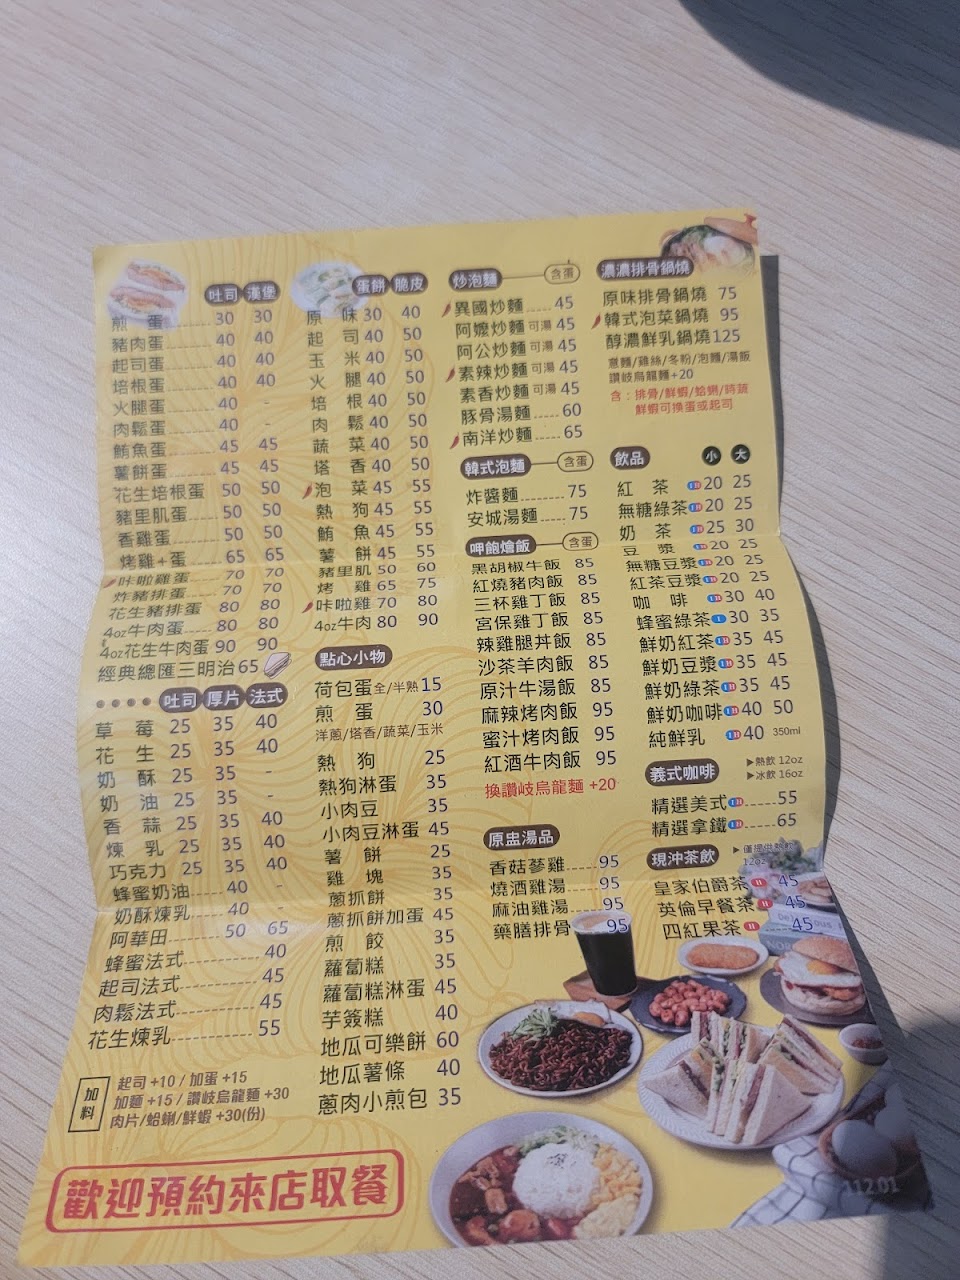 吐司 漢堡
煎蛋 30 30
豬肉蛋 40 40
起司蛋 40 40
培根蛋 40 40
火腿蛋 40 -
肉鬆蛋 40 -
鮪魚蛋 45 45
薯餅蛋 45 45
花生培根蛋 50 50
豬里肌蛋 50 50
香雞蛋 50 50
烤雞+蛋 65 65
咔啦雞蛋 70 70
炸豬排蛋 70 70
花生豬排蛋 80 80
4oz牛肉蛋 80 80
4oz花生牛肉蛋 90 90
經典總匯三明治 65
吐司 厚片 法式
草莓 25 35 40
花生 25 35 40
奶酥 25 35 -
奶油 25 35 -
香蒜 25 35 40
煉乳 25 35 40
巧克力 25 35 40
蜂蜜奶油 40 -
奶酥煉乳 40 -
阿華田 50 65
蜂蜜法式 40
起司法式 45
肉鬆法式 45
花生煉乳 55
加料
起司 +10 / 加蛋 +15
加麵 +15 / 讚岐烏龍麵 +30
肉片/蛤蜊/鮮蝦 +30(份)
歡迎預約來店取餐
蛋餅 脆皮
原味 30 40
起司 40 50
玉米 40 50
火腿 40 50
培根 40 50
肉鬆 40 50
蔬菜 40 50
塔香 40 50
泡菜 45 55
熱狗 45 55
鮪魚 45 55
薯餅 45 55
豬里肌 50 60
烤雞 65 75
咔啦雞 70 80
4oz牛肉 80 90
點心小物
荷包蛋 全/半熟 15
煎蛋 30
洋蔥/塔香/蔬菜/玉米
熱狗 25
熱狗淋蛋 35
小肉豆 35
小肉豆淋蛋 45
薯餅 25
雞塊 35
蔥抓餅 35
蔥抓餅加蛋 45
煎餃 35
蘿蔔糕 35
蘿蔔糕淋蛋 45
芋簽糕 40
地瓜可樂餅 60
地瓜薯條 40
蔥肉小煎包 35
炒泡麵 含蛋
異國炒麵 45
阿嬤炒麵 可湯 45
阿公炒麵 可湯 45
素辣炒麵 可湯 45
素香炒麵 可湯 45
豚骨湯麵 60
南洋炒麵 65
韓式泡麵 含蛋
炸醬麵 75
安城湯麵 75
呷飽燴飯 含蛋
黑胡椒牛飯 85
紅燒豬肉飯 85
三杯雞丁飯 85
宮保雞丁飯 85
辣雞腿丼飯 85
沙茶羊肉飯 85
原汁牛湯飯 85
麻辣烤肉飯 95
蜜汁烤肉飯 95
紅酒牛肉飯 95
換讚岐烏龍麵 +20
原盅湯品
香菇蔘雞 95
燒酒雞湯 95
麻油雞湯 95
藥膳排骨 95
濃濃排骨鍋燒
原味排骨鍋燒 75
韓式泡菜鍋燒 95
醇濃鮮乳鍋燒 125
意麵/雞絲/冬粉/泡麵/湯飯
讚岐烏龍麵+20
含：排骨/鮮蝦/蛤蜊/時蔬
鮮蝦可換蛋或起司
飲品 小 大
紅茶 I H 20 25
無糖綠茶 I H 20 25
奶茶 I H 25 30
豆漿 I H 20 25
無糖豆漿 I H 20 25
紅茶豆漿 I H 20 25
咖啡 I H 30 40
蜂蜜綠茶 I 30 35
鮮奶紅茶 I H 35 45
鮮奶豆漿 I H 35 45
鮮奶綠茶 I H 35 45
鮮奶咖啡 I H 40 50
純鮮乳 I H 40 350ml
義式咖啡 ▶熱飲 12oz
▶冰飲 16oz
精選美式 I H 55
精選拿鐵 I H 65
現沖茶飲 ▶僅提供熱飲
12oz
皇家伯爵茶 H 45
英倫早餐茶 H 45
四紅果茶 H 45
112.01